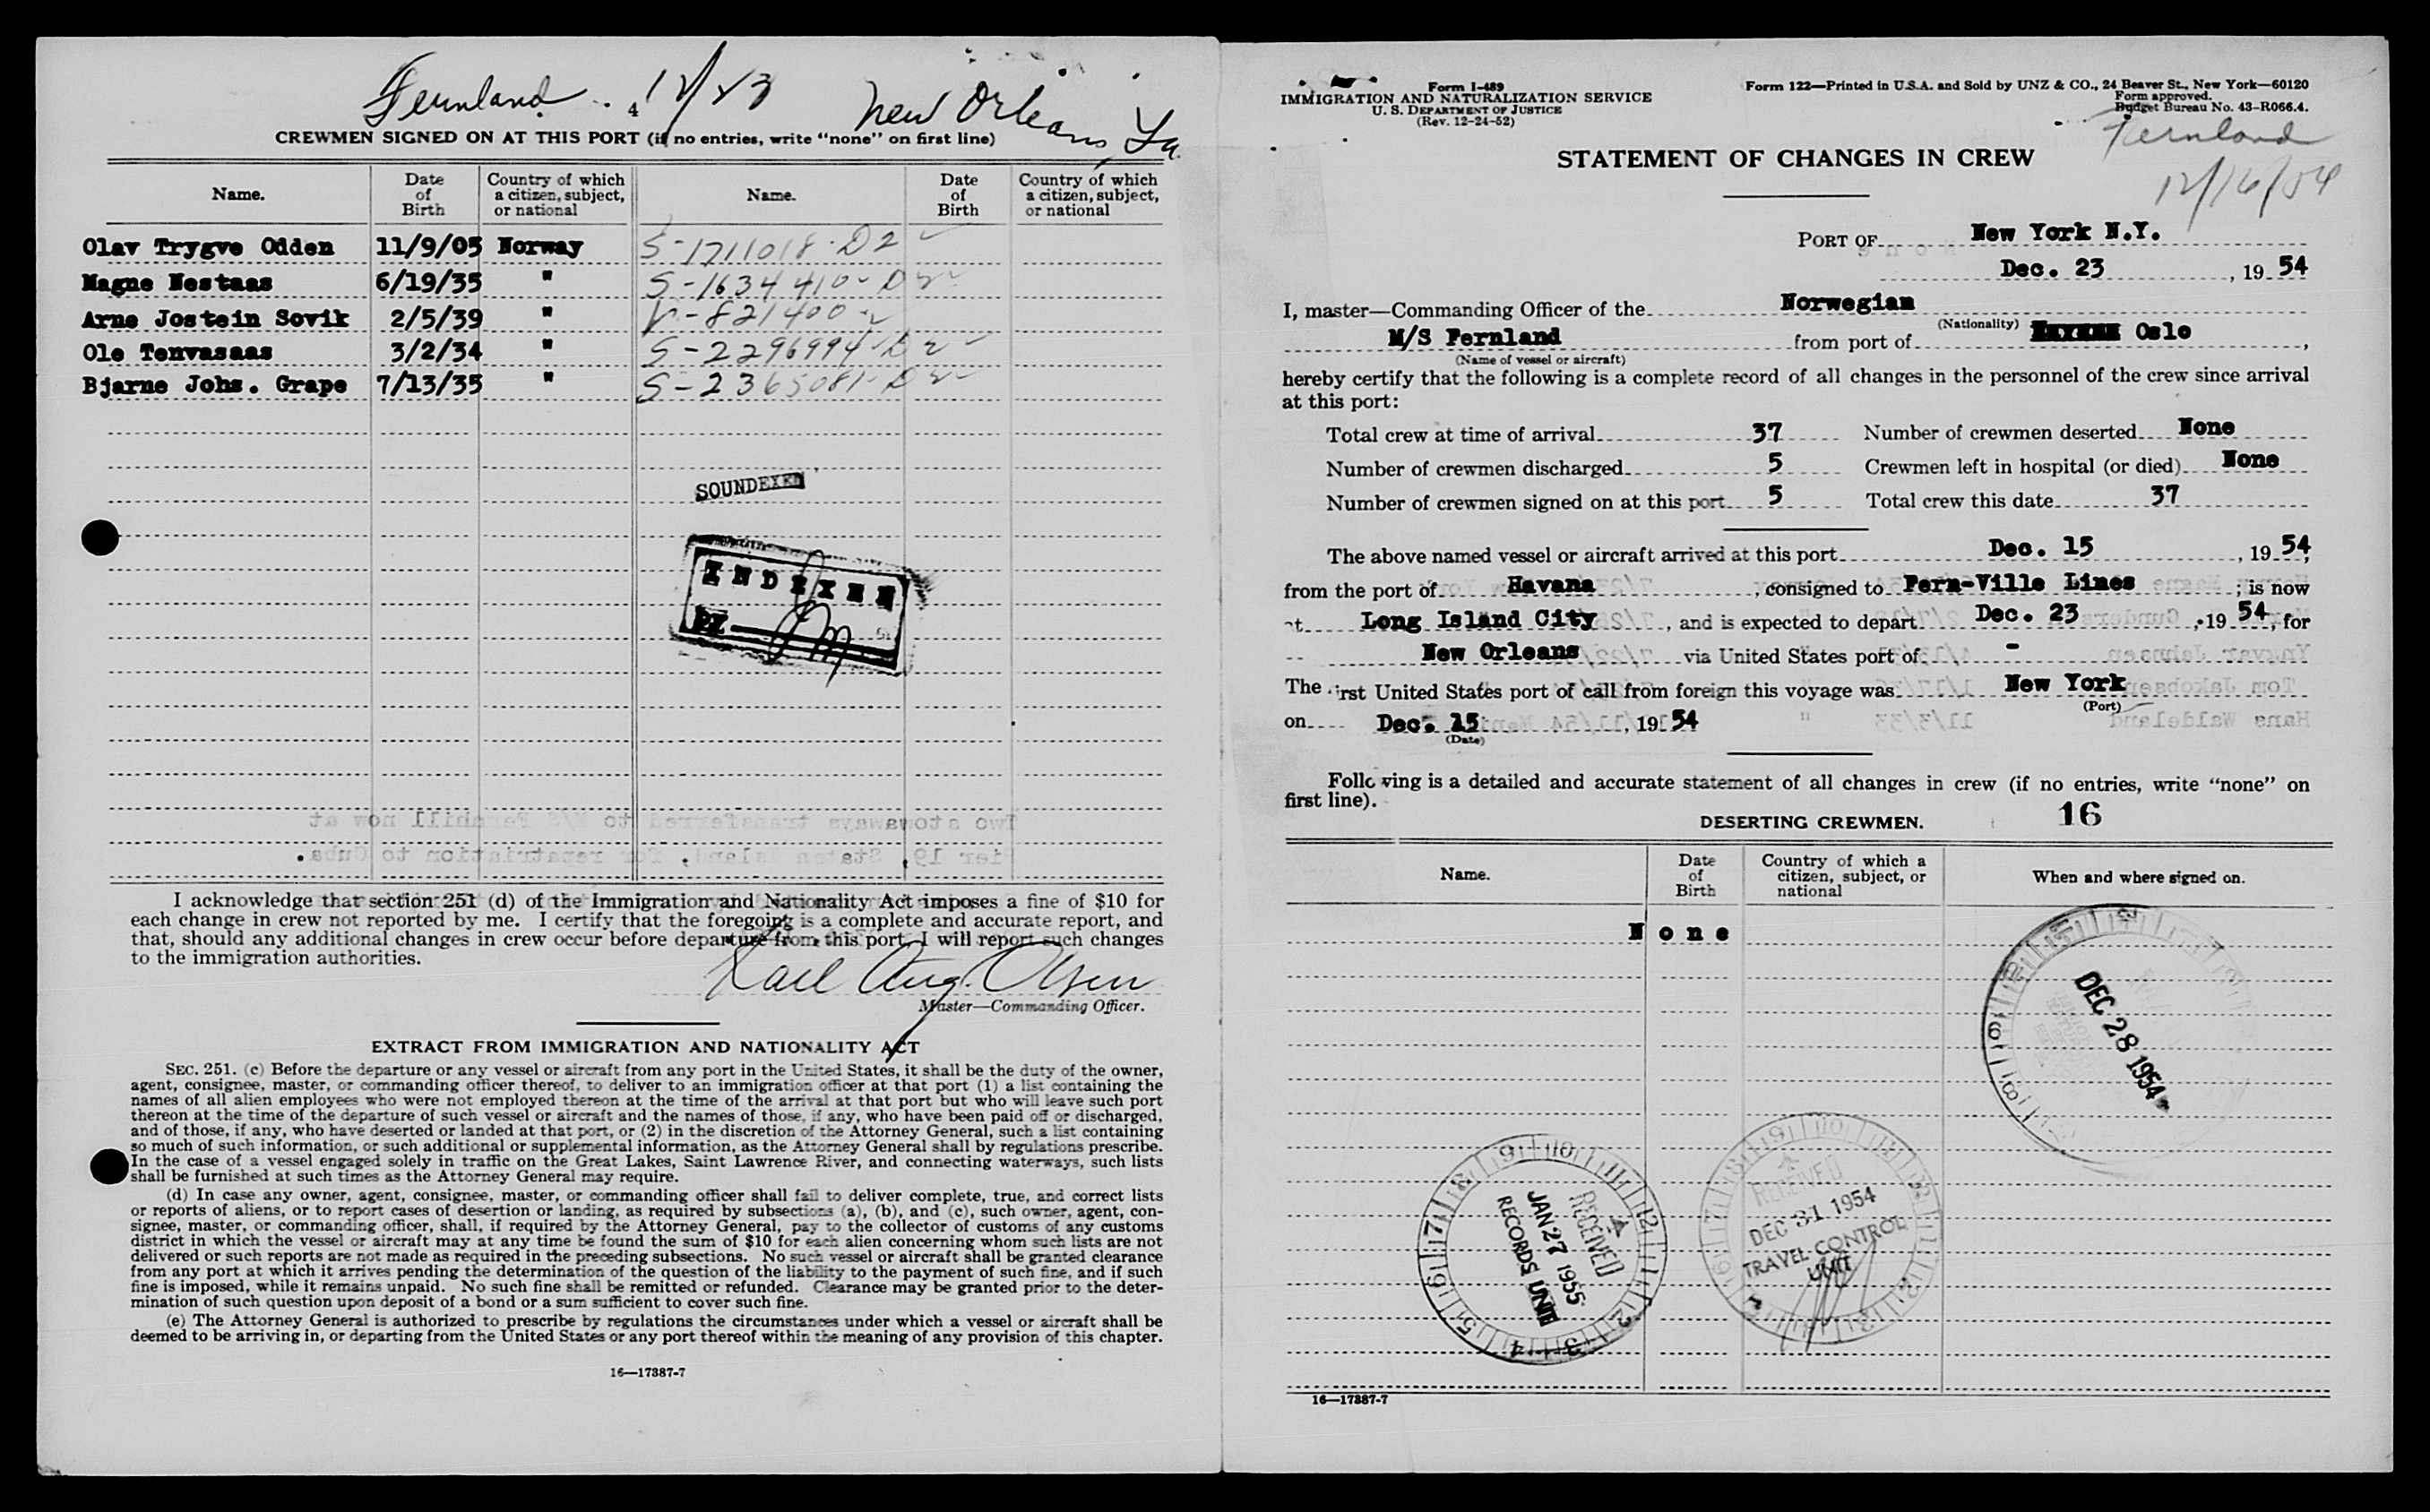 Fernland . 4 12/23 New Orleans, La.
CREWMEN SIGNED ON AT THIS PORT (if no entries, write "none" on first line)
Name. Date of Birth Country of which a citizen, subject, or national Name. Date of Birth Country of which a citizen, subject, or national
Olav Trygve Odden 11/9/05 Norway S-1711018-D2
Magne Nestaas 6/19/35 " S-1634410-D2
Arne Jostein Sovik 2/5/39 " V-821400
Ole Tenvasaas 3/2/34 " S-2296994-D2
Bjarne Johs. Grape 7/13/35 " S-2365081-D2
SOUNDEXED
INDEXED
BY
Two stowaways transferred to M/S Fernhill now at
Pier 19, Staten Island, for repatriation to Cuba.
I acknowledge that section 251 (d) of the Immigration and Nationality Act imposes a fine of $10 for
each change in crew not reported by me. I certify that the foregoing is a complete and accurate report, and
that, should any additional changes in crew occur before departure from this port, I will report such changes
to the immigration authorities.
Karl Aug. Olsen
Master—Commanding Officer.
EXTRACT FROM IMMIGRATION AND NATIONALITY ACT
SEC. 251. (c) Before the departure or any vessel or aircraft from any port in the United States, it shall be the duty of the owner,
agent, consignee, master, or commanding officer thereof, to deliver to an immigration officer at that port (1) a list containing the
names of all alien employees who were not employed thereon at the time of the arrival at that port but who will leave such port
thereon at the time of the departure of such vessel or aircraft and the names of those, if any, who have been paid off or discharged,
and of those, if any, who have deserted or landed at that port, or (2) in the discretion of the Attorney General, such a list containing
so much of such information, or such additional or supplemental information, as the Attorney General shall by regulations prescribe.
In the case of a vessel engaged solely in traffic on the Great Lakes, Saint Lawrence River, and connecting waterways, such lists
shall be furnished at such times as the Attorney General may require.
(d) In case any owner, agent, consignee, master, or commanding officer shall fail to deliver complete, true, and correct lists
or reports of aliens, or to report cases of desertion or landing, as required by subsections (a), (b), and (c), such owner, agent, con-
signee, master, or commanding officer, shall, if required by the Attorney General, pay to the collector of customs of any customs
district in which the vessel or aircraft may at any time be found the sum of $10 for each alien concerning whom such lists are not
delivered or such reports are not made as required in the preceding subsections. No such vessel or aircraft shall be granted clearance
from any port at which it arrives pending the determination of the question of the liability to the payment of such fine, and if such
fine is imposed, while it remains unpaid. No such fine shall be remitted or refunded. Clearance may be granted prior to the deter-
mination of such question upon deposit of a bond or a sum sufficient to cover such fine.
(e) The Attorney General is authorized to prescribe by regulations the circumstances under which a vessel or aircraft shall be
deemed to be arriving in, or departing from the United States or any port thereof within the meaning of any provision of this chapter.
16—17387-7
Form I-489
IMMIGRATION AND NATURALIZATION SERVICE
U. S. DEPARTMENT OF JUSTICE
(Rev. 12-24-52)
Form 122—Printed in U.S.A. and Sold by UNZ & CO., 24 Beaver St., New York—60120
Form approved.
Budget Bureau No. 43-R066.4.
Fernland
12/16/54
STATEMENT OF CHANGES IN CREW
PORT OF New York N.Y.
Dec. 23, 19 54
I, master—Commanding Officer of the Norwegian
(Nationality)
M/S Fernland from port of Oslo,
(Name of vessel or aircraft)
hereby certify that the following is a complete record of all changes in the personnel of the crew since arrival
at this port:
Total crew at time of arrival 37 Number of crewmen deserted None
Number of crewmen discharged 5 Crewmen left in hospital (or died) None
Number of crewmen signed on at this port 5 Total crew this date 37
The above named vessel or aircraft arrived at this port Dec. 15, 19 54,
from the port of Havana, consigned to Fern-Ville Lines; is now
at Long Island City, and is expected to depart Dec. 23, 19 54, for
New Orleans via United States port of -
The first United States port of call from foreign this voyage was New York
(Port)
on Dec. 15, 19 54
(Date)
Following is a detailed and accurate statement of all changes in crew (if no entries, write "none" on
first line).
16
DESERTING CREWMEN.
Name. Date of Birth Country of which a citizen, subject, or national When and where signed on.
None
DEC 28 1954
RECEIVED
JAN 27 1955
RECORDS UNIT
RECEIVED
DEC 31 1954
TRAVEL CONTROL
UNIT
16—17387-7